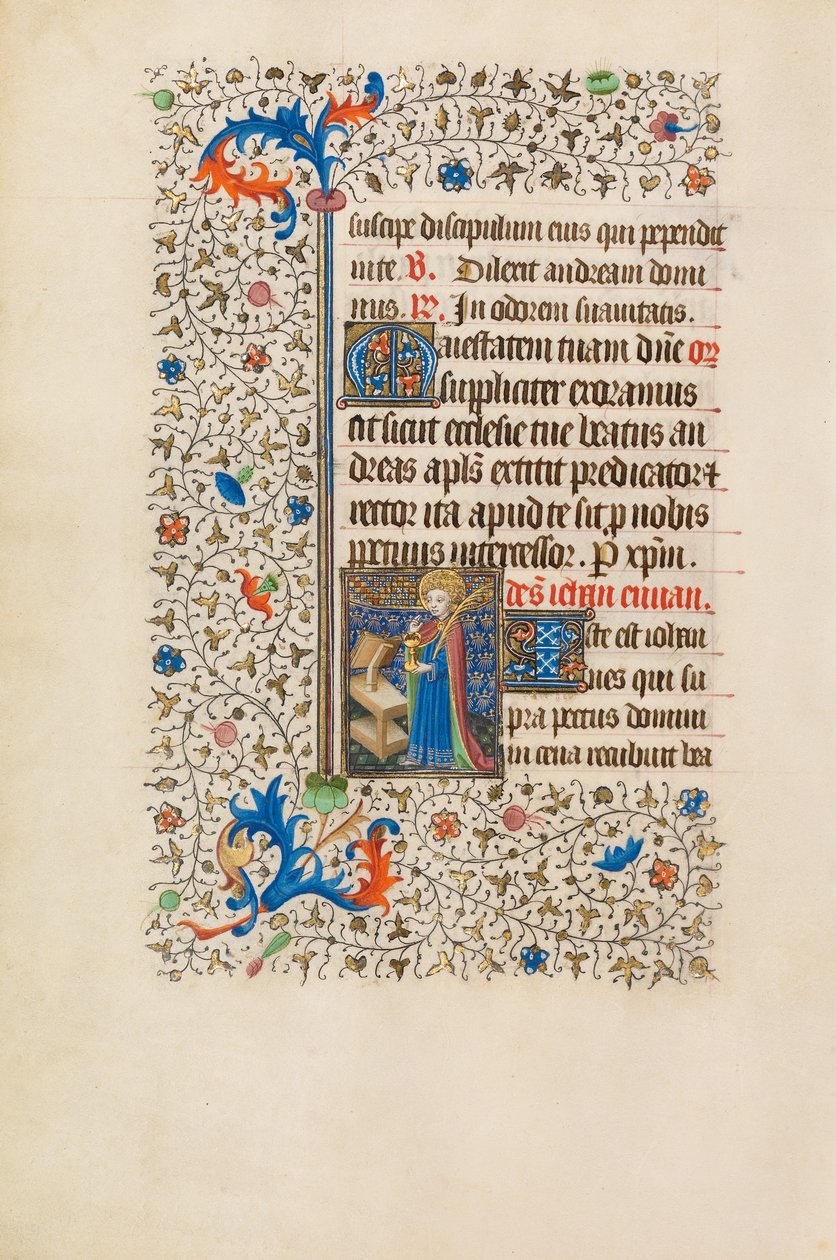 suscipe discipulum eius qui pependit
in te. V. Dilexit andream domi
nus. R. In odorem suauitatis.
Maiestatem tuam dñe or
suppliciter exoramus
ut sicut ecclesie tue beatus an
dreas apl̃s extitit predicator et
rector ita apud te sit p nobis
ppetuus intercessor. P xp̃m.
de s̃ iohan euuan.
Iste est iohan
nes qui su
pra pectus domini
in cena recubuit bea